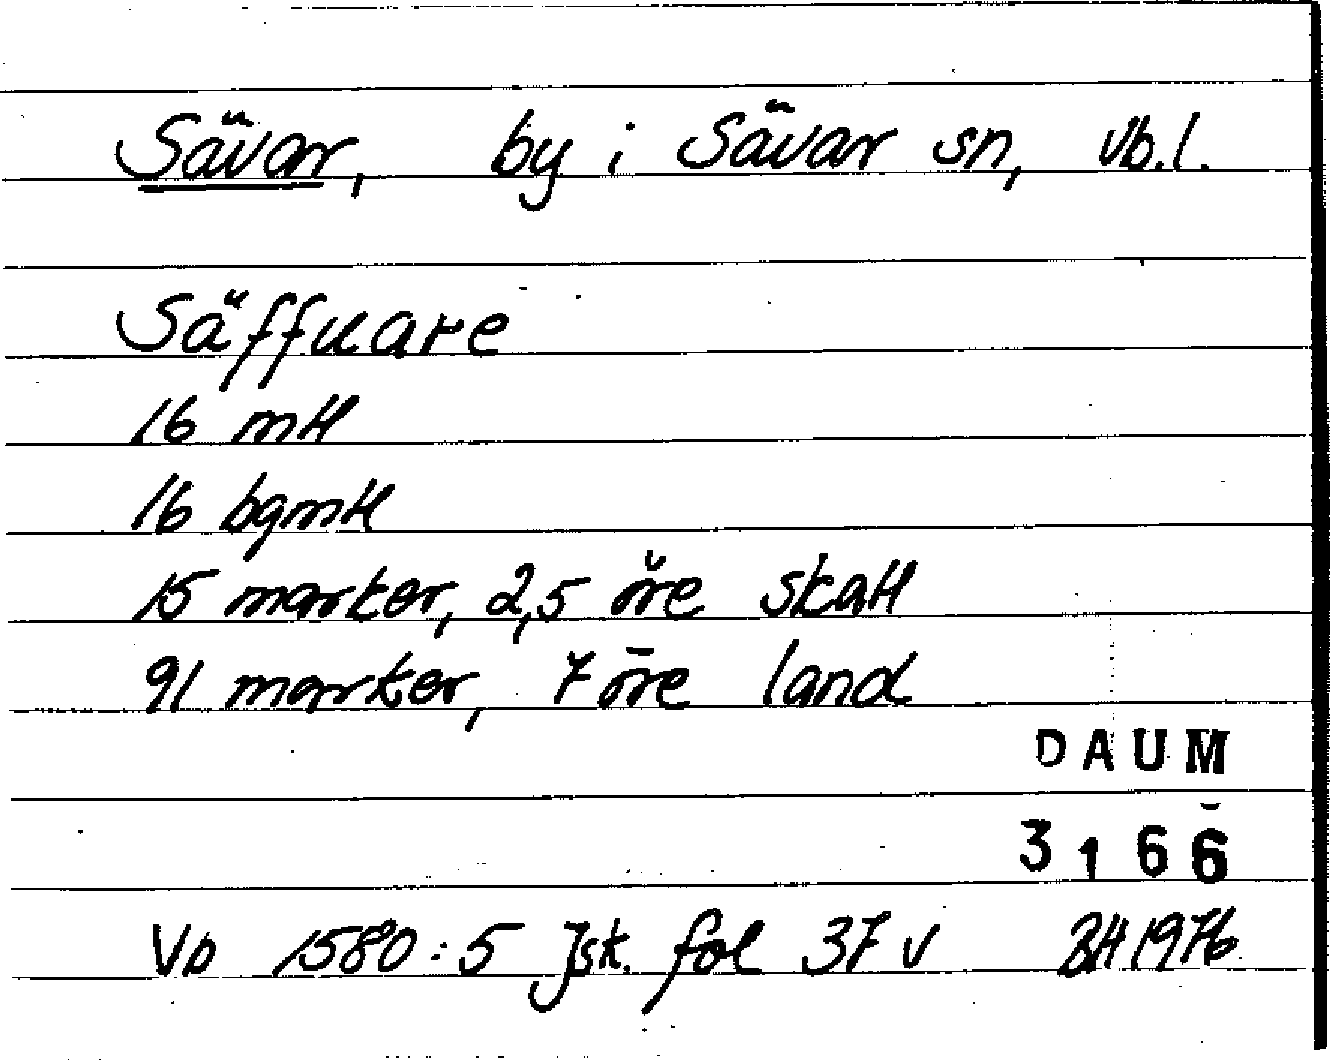 Sävar, by i Sävar sn, Vb.l.
Säffuare
16 mtl
16 bgmtl
15 marker, 2,5 öre skatt
91 marker, 7 öre land
DAUM
3166
Vb 1580:5 Jsk. fol 37 v BH 1976